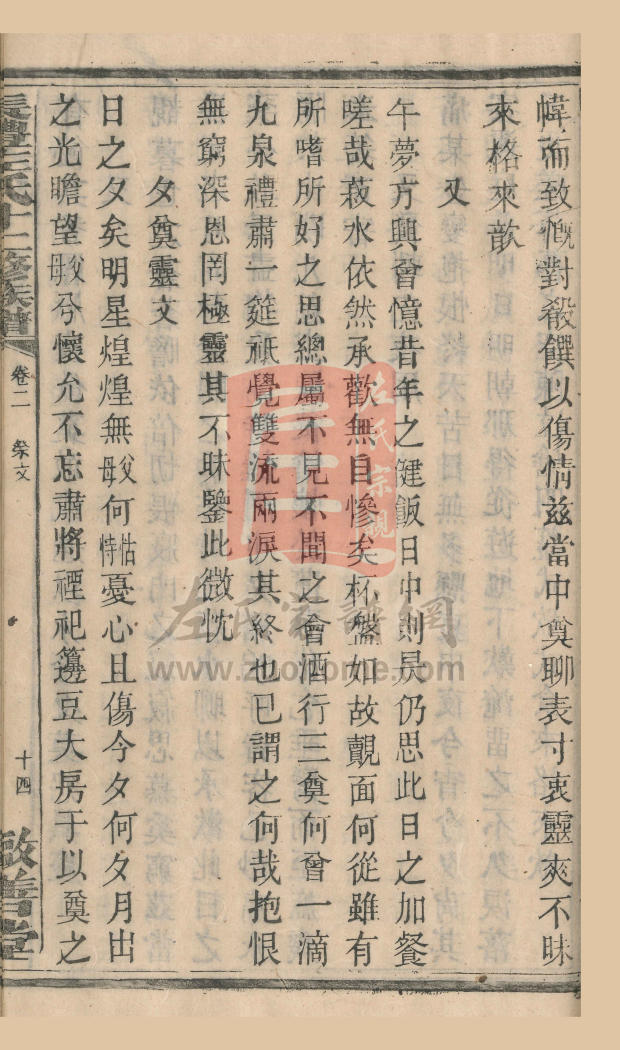 幃而致慨對殽饌以傷情兹當中奠聊表寸衷靈爽不昧
來格來歆
又
午夢方興會憶昔年之健飯日中則昃仍思此日之加餐
嗟哉菽水依然承歡無自慘矣杯盤如故覿面何從雖有
所嗜所好之思總屬不見不聞之會酒行三奠何曾一滴
九泉禮肅一筵祇覺雙流兩淚其終也已謂之何哉抱恨
無窮深恩罔極靈其不昧鑒此微忱
夕奠靈文
日之夕矣明星煌煌無父母何怙恃憂心且傷今夕何夕月出
之光瞻望父母兮懷允不忘肅將禋祀籩豆大房于以奠之
氏十二修族譜
卷二
祭文
十四
敬善堂
左氏宗親
左氏家譜網
www.zuojiome.com